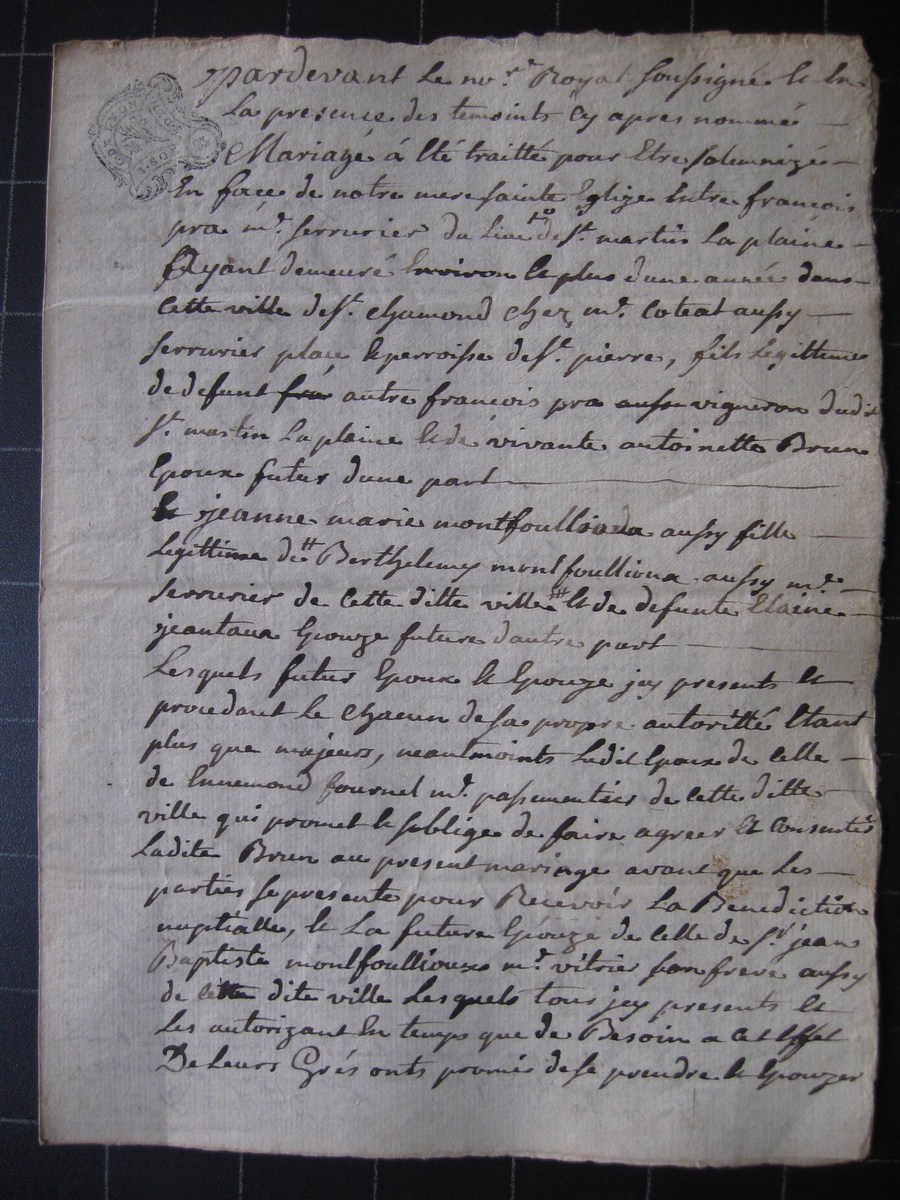 pardevant Le no.re Royal soussigné & En
La presence des temoints Cy apres nommé
Mariage á Eté traitté pour Etre solemnizé
En face de notre mere sainte Eglize Entre françois
pra m.e serrurier du Lieu de St. martin La plaine
Ayant demeuré Environ & plus d'une année dans
Cette ville de St. chamond chez m.e Coteat aussy
serrurier place & perroisse de St. pierre, fils Legittime
de defunt autre francois pra vigneron dudit
St. martin La plaine & de vivante antoinette Brun
Epoux futur d'une part
& jeanne marie aussy fille
Legittime de Berthelemy montfoullioux aussy m.e
serrurier de Cette ditte ville & de defunte
Epouze future d'autre part
Lesquels futur Epoux & Epouze icy presents et
procedant & chacun de sa propre autoritté Etant
plus que majeurs, neantmoints Ledit Epoux de Celle
de Ennemond fournel m.e passementier de Cette ditte
ville qui promet & s'oblige de faire agreer & Consentir
Ladite Brun au present mariage avant que Les
parties se presente pour Recevoir La Benediction
nuptialle, & La future Epouze de Celle de Sr. jean
Baptiste montfoullioux m.e vitrier son frere aussy
de Cette dite ville Lesquels tous icy presents et
Les autorizant En temps que de Besoin a Cet Effet
De Leurs Grés onts promis de se prendre & Epouzer